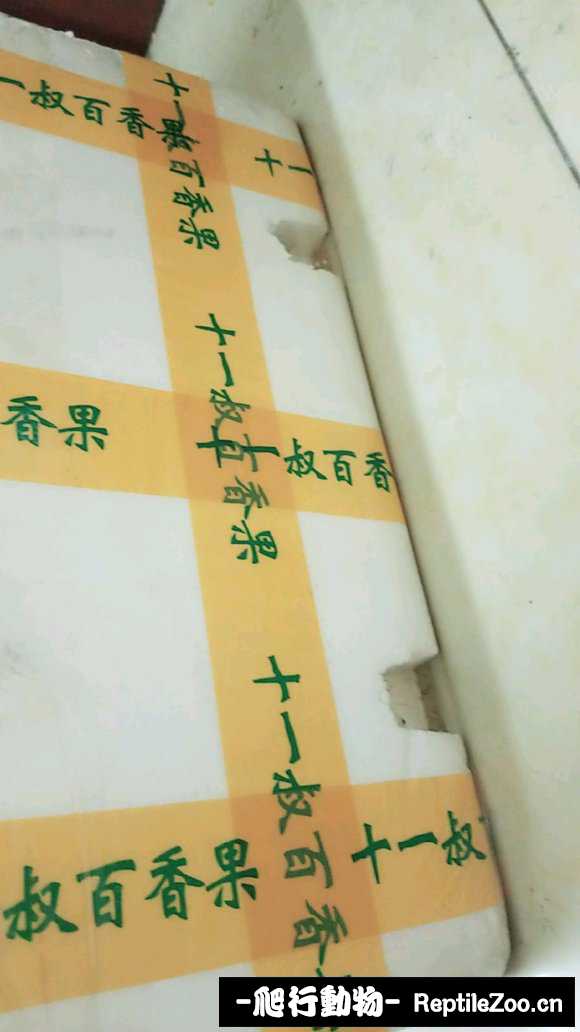 一叔百香果
十一
十一叔百香果
十一叔百香果
香果
十一叔百香
十一叔百香
叔百香果
十一叔
-爬行動物- ReptileZoo.cn